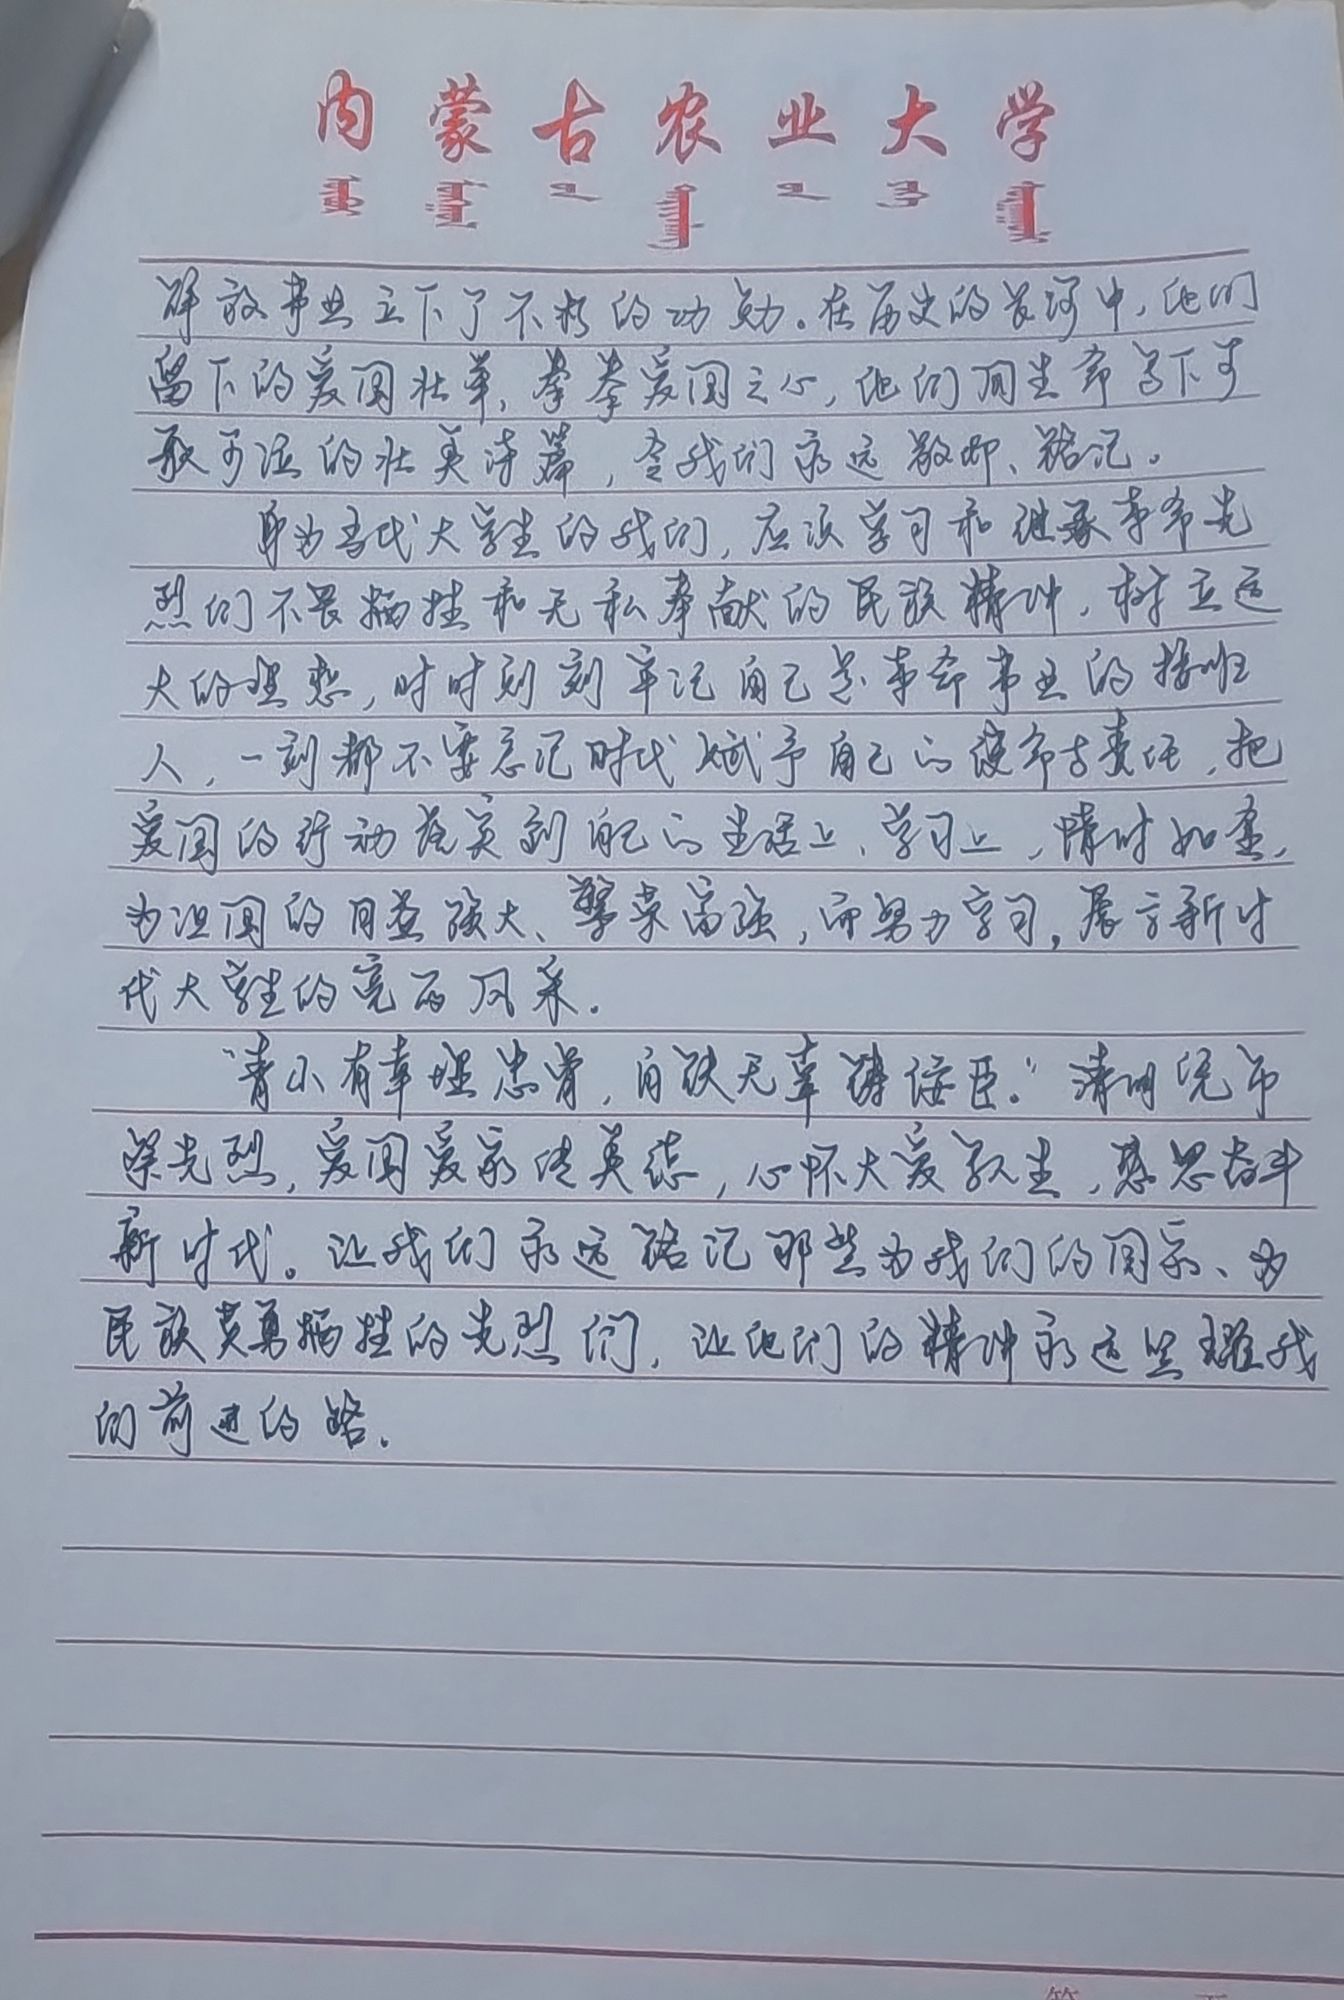 内蒙古农业大学
解放事业立下了不朽的功勋。在历史的长河中，他们
留下的爱国壮举，拳拳爱国之心，他们用生命写下可
歌可泣的壮美诗篇，令我们永远敬仰、铭记。
身为当代大学生的我们，应该学习和继承革命先
烈们不畏牺牲和无私奉献的民族精神，树立远
大的理想，时时刻刻牢记自己是革命事业的接班
人，一刻都不要忘记时代赋予自己的使命与责任，把
爱国的行动落实到自己的生活上、学习上，惜时如金，
为祖国的日益强大、繁荣富强，而努力学习，展示新时
代大学生的亮丽风采。
“青山有幸埋忠骨，白铁无辜铸佞臣。”清明凭吊
祭先烈，爱国爱家传美德，心怀大爱学人生，感恩奋斗
新时代。让我们永远铭记那些为我们的国家、为
民族英勇牺牲的先烈们，让他们的精神永远照耀我
们前进的路。